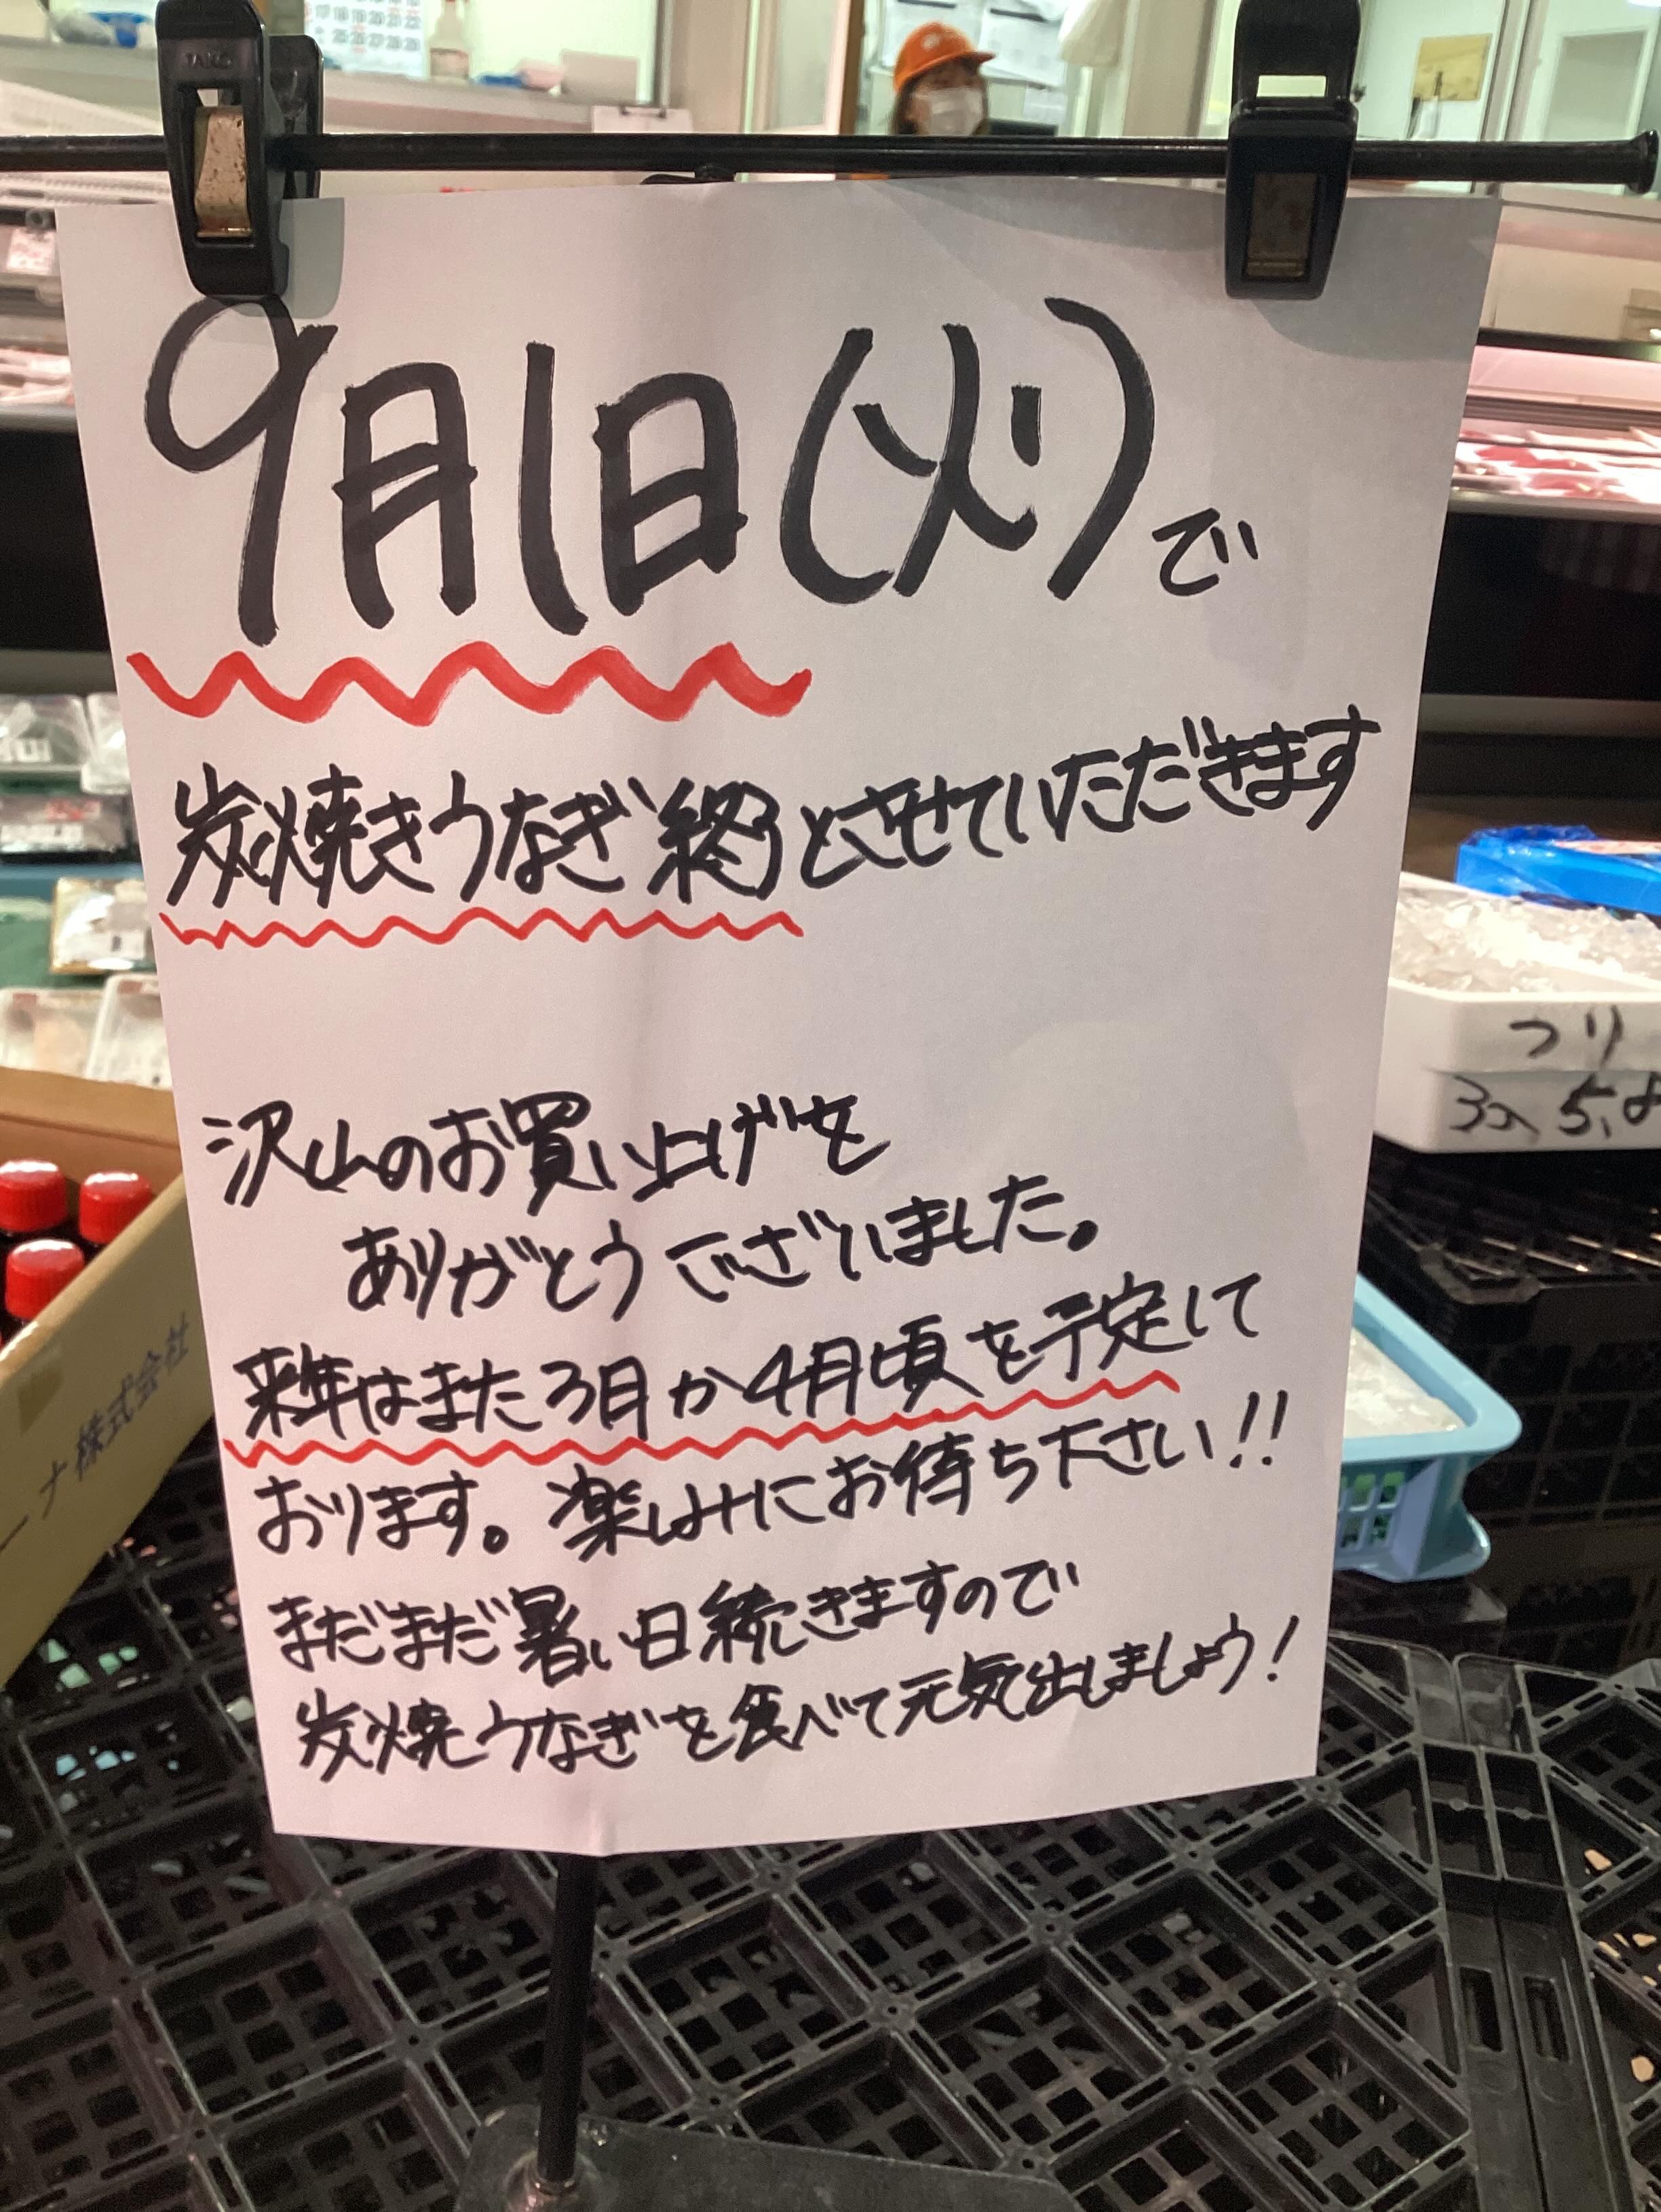 9月1日(火)で
炭焼きうなぎ終とさせていただきます
沢山のお買い上げを
ありがとうございました。
来年はまた3月か4月頃を予定して
おります。楽しみにお待ち下さい!!
まだまだ暑い日続きますので
炭焼うなぎを食べて元気出しましょう!
ナ株式会社